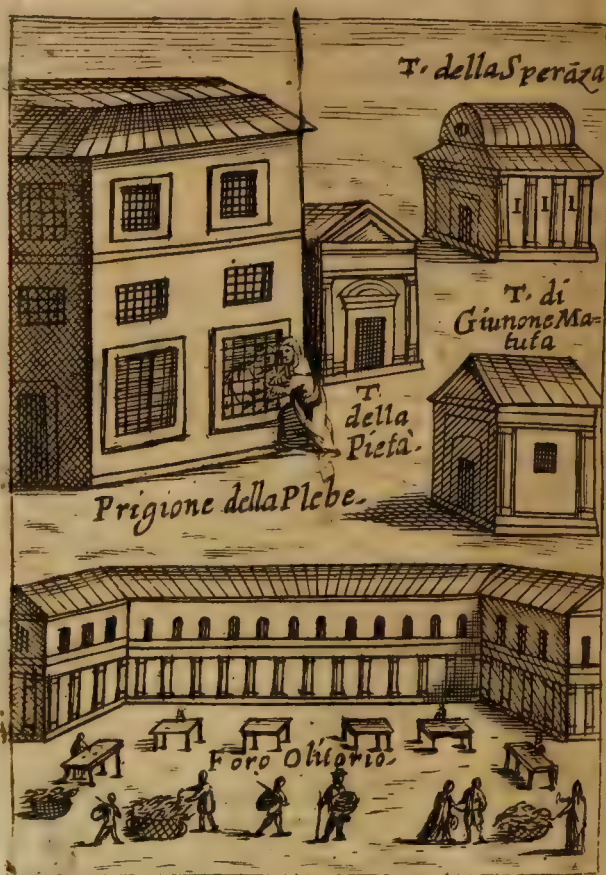 T. della Sperāza
T. di
Giunone Ma=
tuta
T.
della
Pietà.
Prigione della Plebe.
Foro Olitorio.